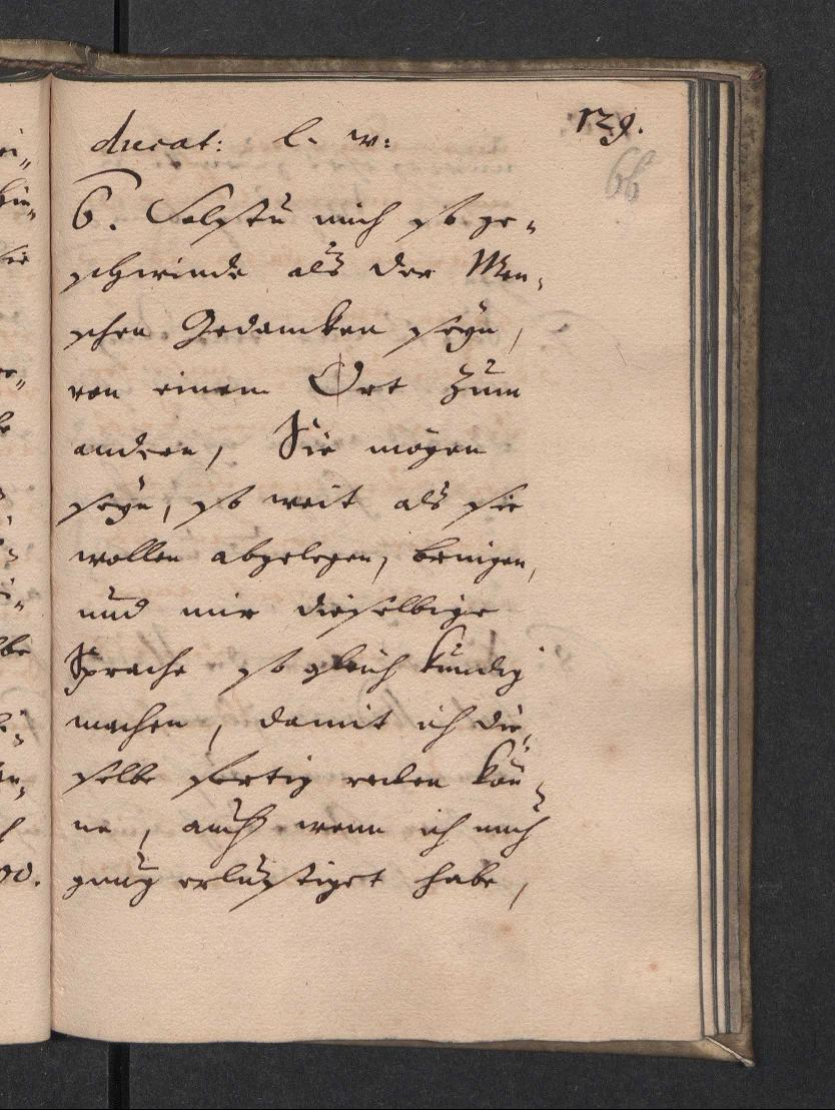 129.
ducat: l. w:
66
6. Solstu mich so ge=
schwinde als der Men=
schen Gedancken seyn,
von einem Ort zum
andern, Sie mögen
seyn, so weit als sie
wollen abgelegen, bringen,
und mir dieselbige
Sprache so gleich kundig
machen, damit ich die=
selbe fertig reden kön=
ne, auch wenn ich mich
gnug erlustiget habe,